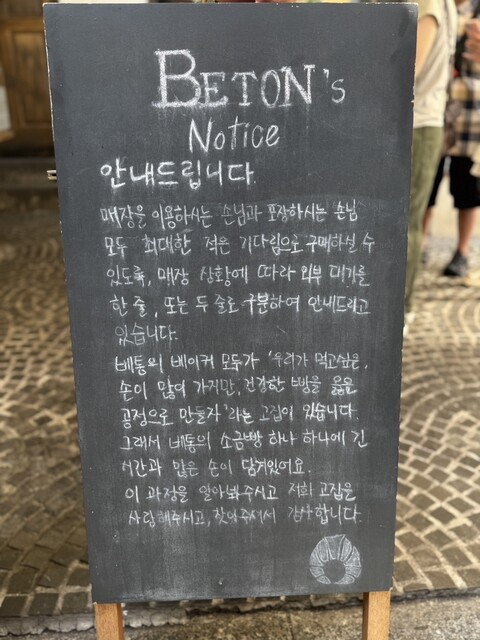 BETON's
Notice
안내드립니다.
매장을 이용하시는 손님과 포장하시는 손님
모두 최대한 적은 기다림으로 구매하실 수
있도록, 매장 상황에 따라 외부 대기를
한 줄, 또는 두 줄로 구분하여 안내드리고
있습니다.
베통의 베이커 모두가 '우리가 먹고싶은,
손이 많이 가지만, 건강한 빵을 옳은
공정으로 만들자'라는 고집이 있습니다.
그래서 베통의 소금빵 하나 하나에 긴
시간과 많은 손이 담겨있어요.
이 과정을 알아봐주시고 저희 고집을
사랑해주시고, 찾아주셔서 감사합니다.